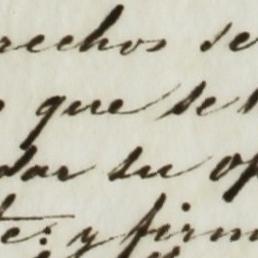 rechos se
que se
dar su op
te: y firm